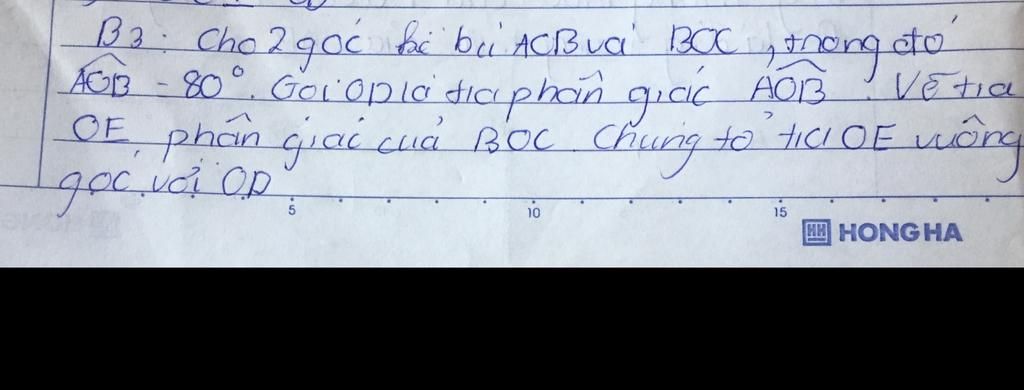 B3: Cho 2 góc kề bù AOB và BOC, trong đó
AOB = 80°. Gọi OD là tia phân giác AOB. Vẽ tia
OE phân giác của BOC. Chứng tỏ tia OE vuông
góc với OD
5 10 15
HH HONG HA